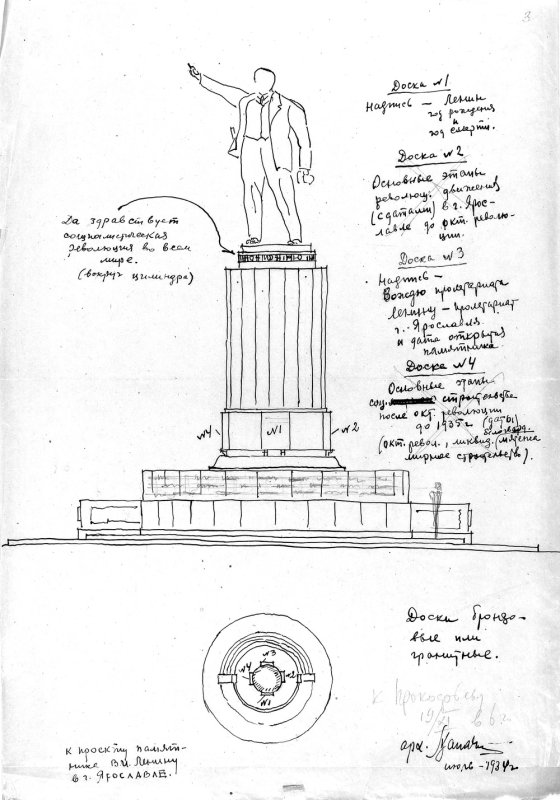 3
Доска №1
Надпись — Ленин
год рождения
и
год смерти.
Доска №2
Основные этапы
революц. движения
(с датами) в г. Ярос-
лавле до окт. револю-
ции.
Да здравствует
социалистическая
революция во всем
мире.
(вокруг цилиндра)
Доска №3
Надпись —
Вождю пролетариата
Ленину — пролетариат
г. Ярославля
и дата открытия
памятника
Доска №4
Основные этапы
соц. строительства
после окт. революции
до 1935 г (даты)
(окт. револ., ликвид. мятежа
мирное строительство).
№4
№1
№2
№3
№4
№2
№1
Доски бронзо-
вые или
гранитные.
К
арх.
июль - 1934 г
К проекту памят-
ника В.И. Ленину
в г. Ярославле.